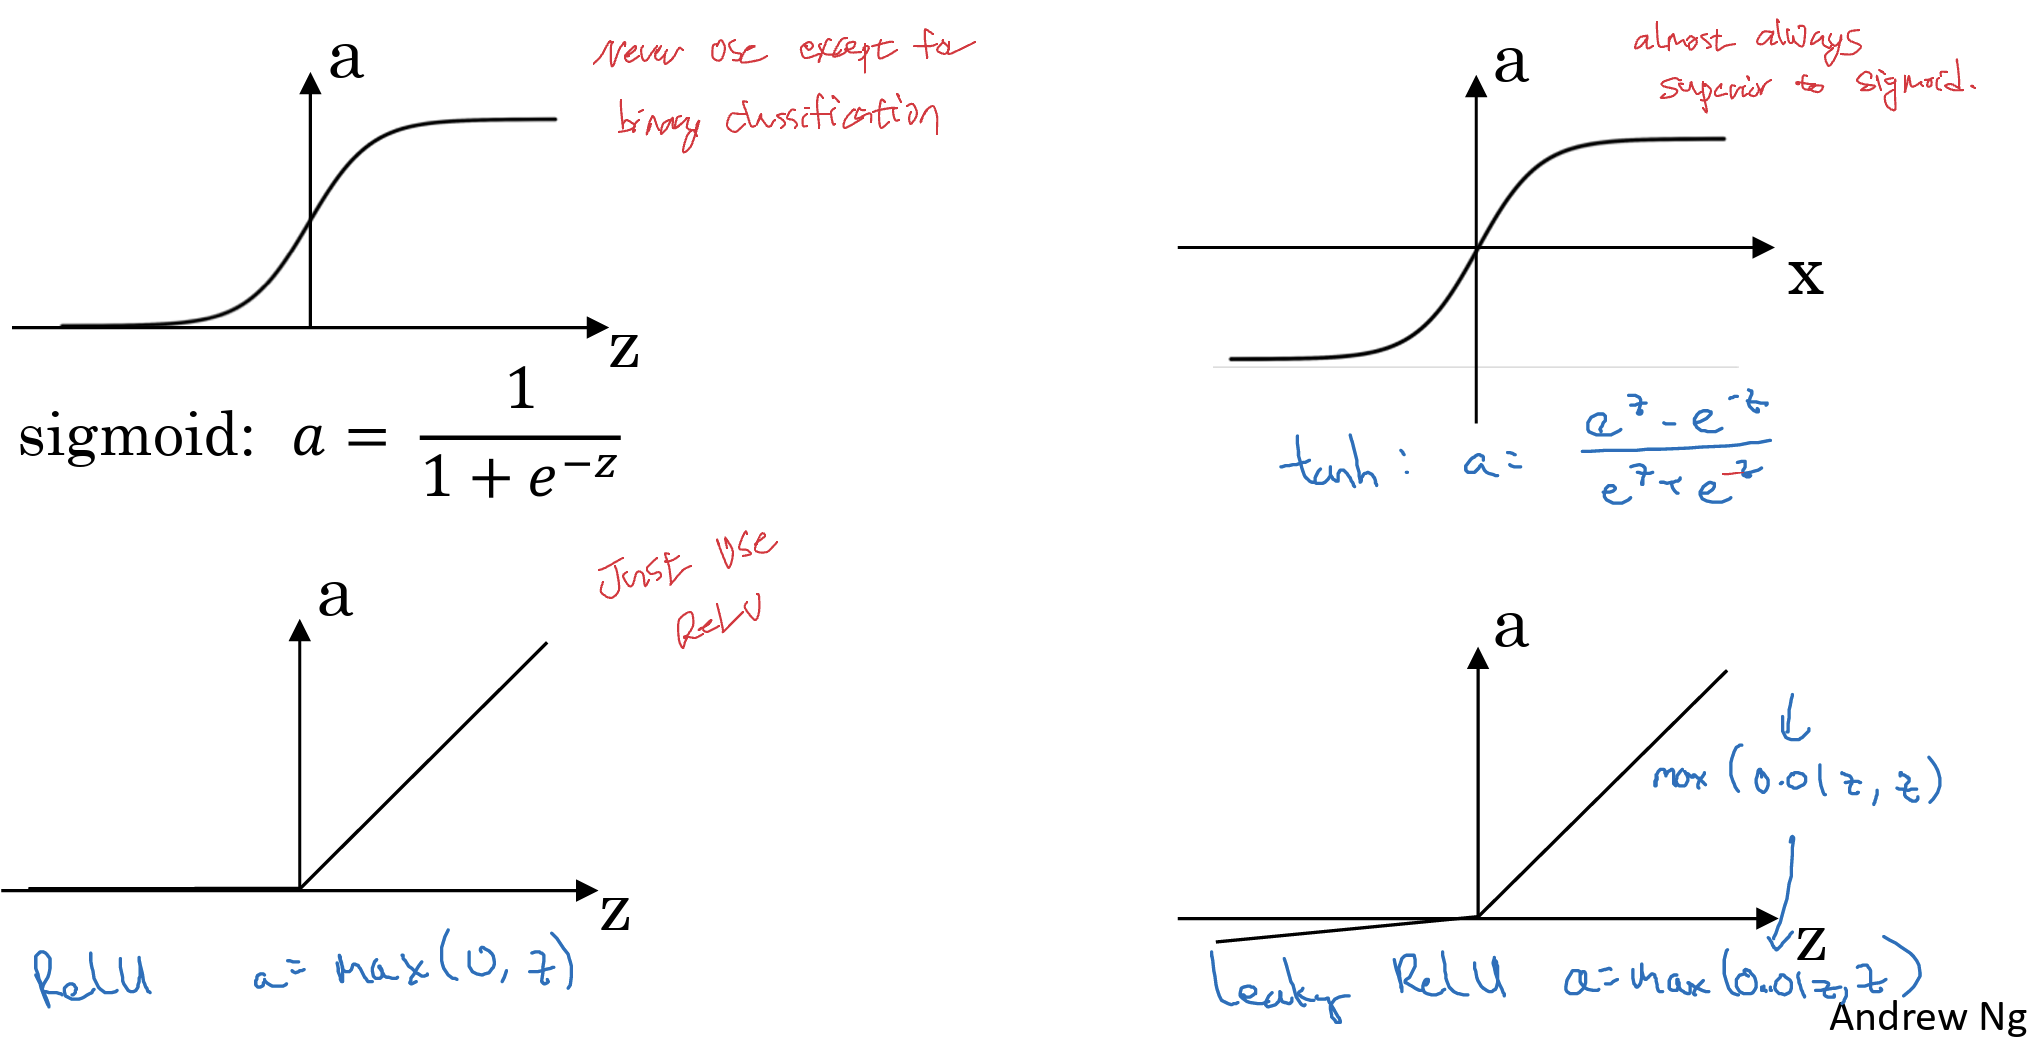 a
Never use except for
binary classification
z
sigmoid: a = 1 / (1 + e^{-z})
a
almost always
superior to sigmoid.
x
tanh: a = (e^z - e^{-z}) / (e^z + e^{-z})
a
Just use
ReLU
z
ReLU a = max(0, z)
a
max(0.01z, z)
z
Leaky ReLU a = max(0.01z, z)
Andrew Ng